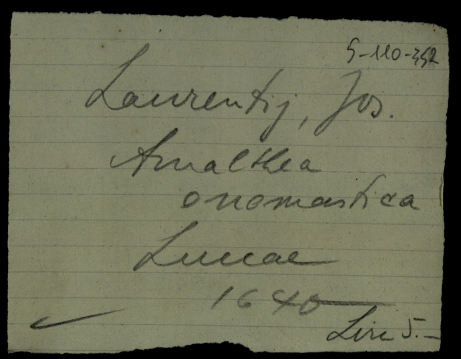 5-110-352
Laurentij, Jos.
Amalthea
onomastica
Lucae
1640
Lire 5.-